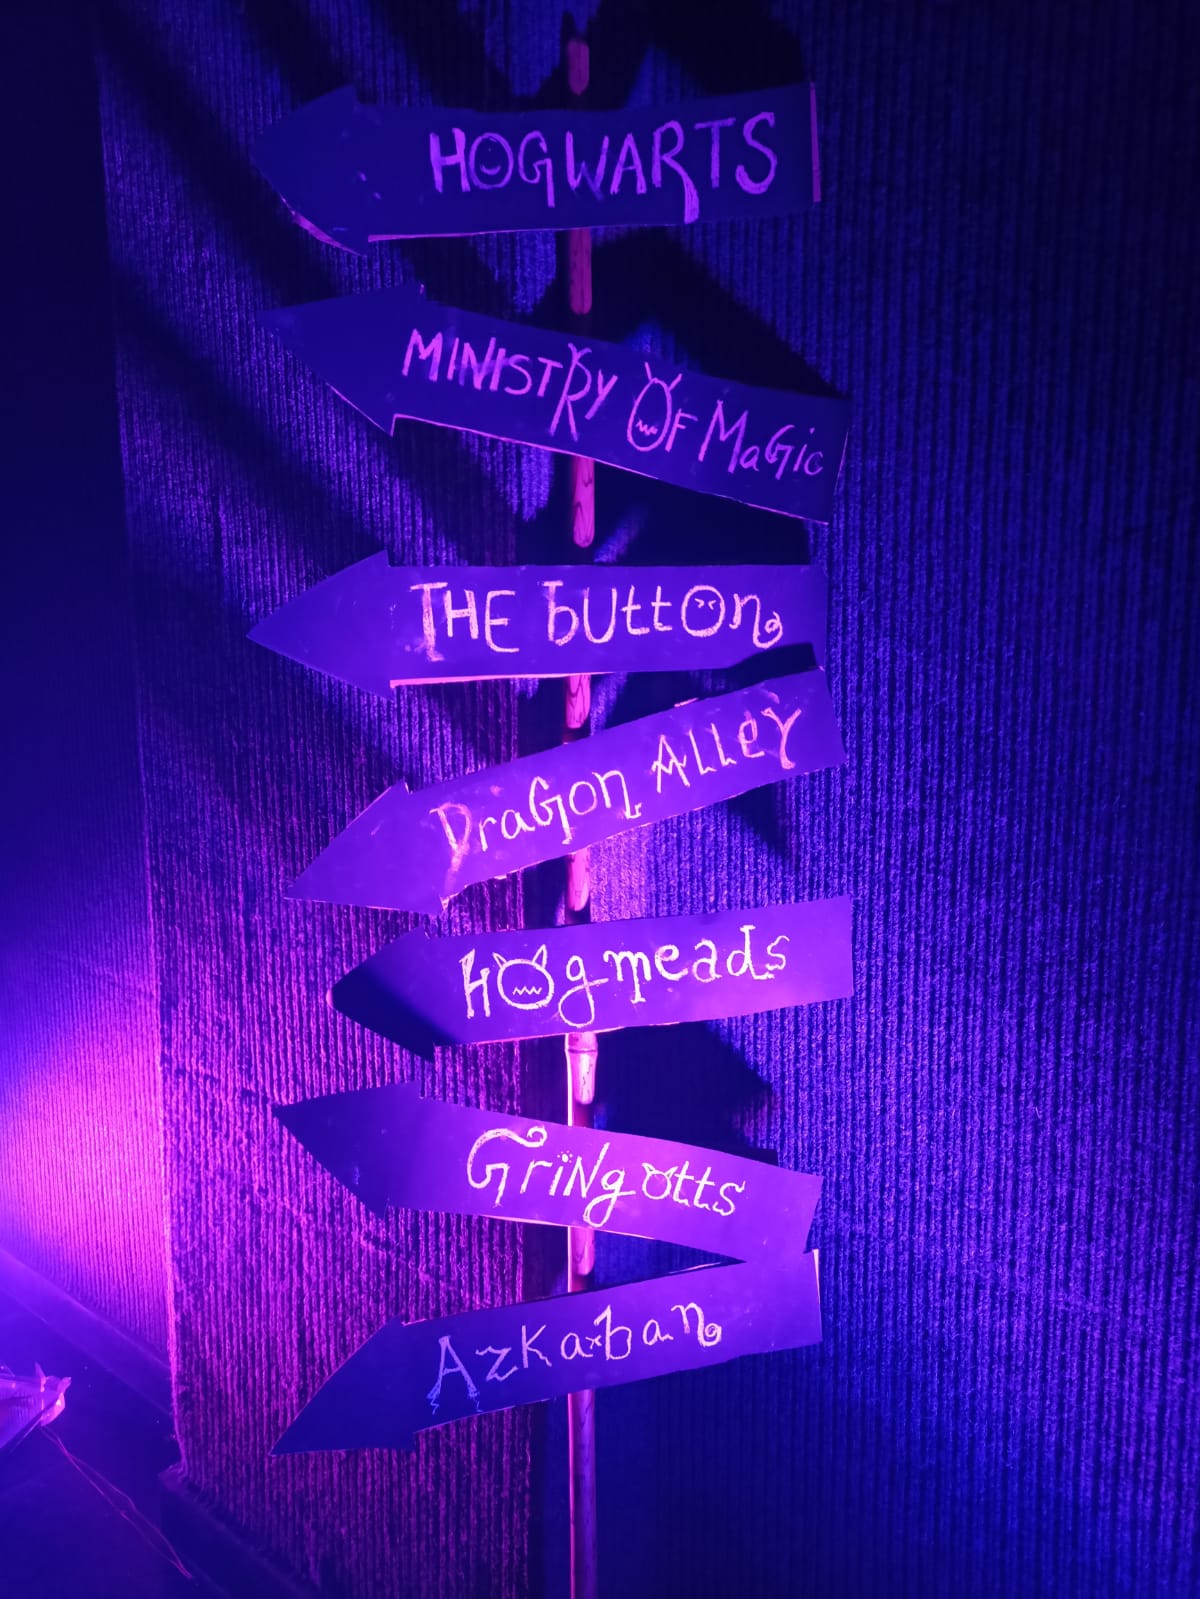 HOGWARTS
MINISTRY OF MaGic
THE bUttOn
DraGon ALLeY
HOgmeads
GriNgotts
AzKaban